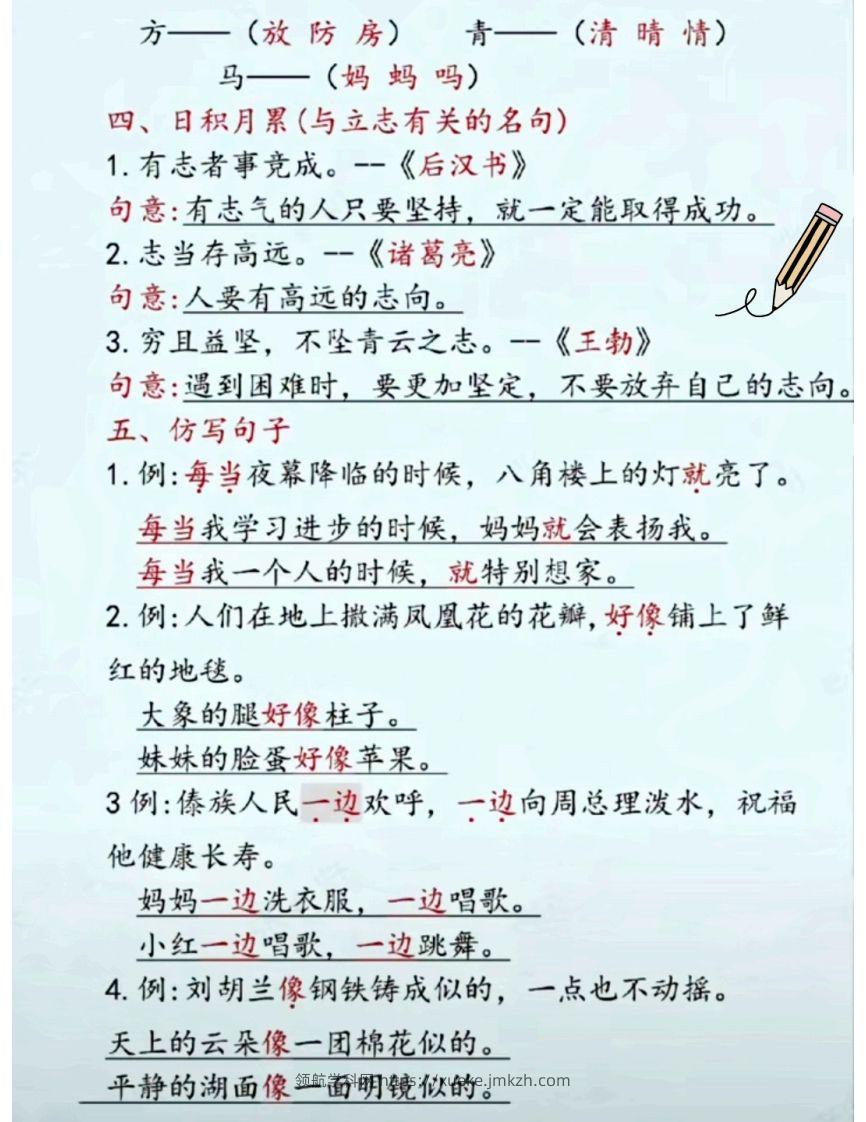 方——（放 防 房） 青——（清 晴 情）
马——（妈 蚂 吗）
四、日积月累(与立志有关的名句)
1.有志者事竞成。--《后汉书》
句意:有志气的人只要坚持，就一定能取得成功。
2.志当存高远。--《诸葛亮》
句意:人要有高远的志向。
3.穷且益坚，不坠青云之志。--《王勃》
句意:遇到困难时，要更加坚定，不要放弃自己的志向。
五、仿写句子
1.例:每当夜幕降临的时候，八角楼上的灯就亮了。
每当我学习进步的时候，妈妈就会表扬我。
每当我一个人的时候，就特别想家。
2.例:人们在地上撒满凤凰花的花瓣,好像铺上了鲜
红的地毯。
大象的腿好像柱子。
妹妹的脸蛋好像苹果。
3例:傣族人民一边欢呼，一边向周总理泼水，祝福
他健康长寿。
妈妈一边洗衣服，一边唱歌。
小红一边唱歌，一边跳舞。
4.例:刘胡兰像钢铁铸成似的，一点也不动摇。
天上的云朵像一团棉花似的。
平静的湖面像一面明镜似的。
领航学科网 https://xueke.jmkzh.com